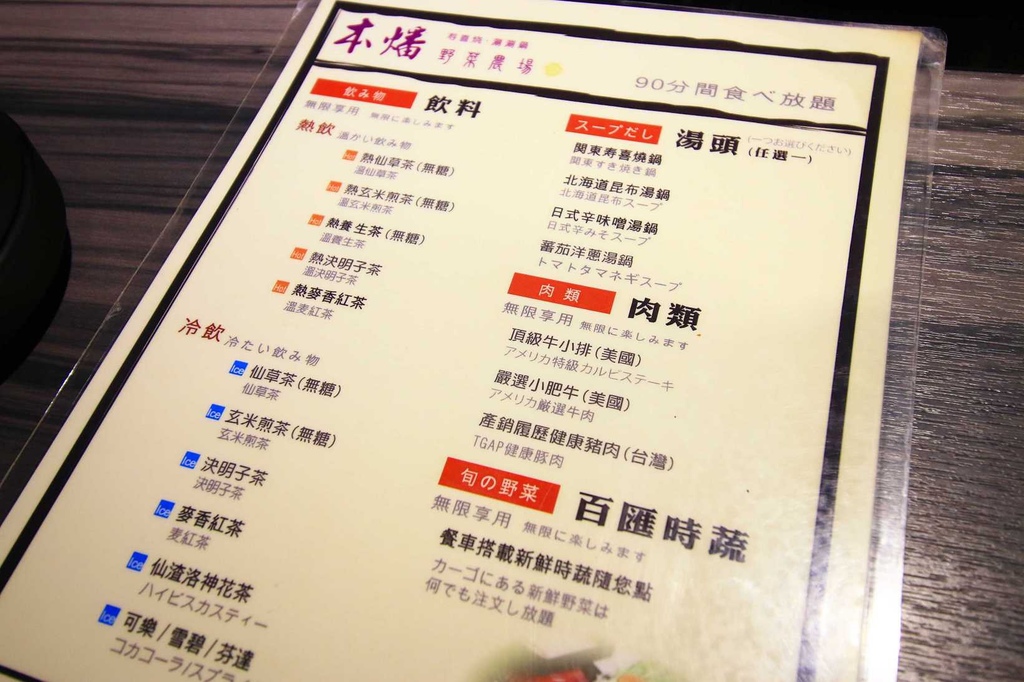 本燔
寿喜燒·涮涮鍋
野菜農場
90分間食べ放題
飲み物 飲料
無限享用 無限に楽しみます
熱飲 温かい飲み物
Hot 熱仙草茶(無糖)
温仙草茶
Hot 熱玄米煎茶(無糖)
温玄米煎茶
Hot 熱養生茶(無糖)
温養生茶
Hot 熱決明子茶
温決明子茶
Hot 熱麥香紅茶
温麦紅茶
冷飲 冷たい飲み物
Ice 仙草茶(無糖)
仙草茶
Ice 玄米煎茶(無糖)
玄米煎茶
Ice 決明子茶
決明子茶
Ice 麥香紅茶
麦紅茶
Ice 仙渣洛神花茶
ハイビスカスティー
Ice 可樂/雪碧/芬達
コカコーラ/スプラ
スープだし 湯頭 (一つお選びください)
(任選一)
関東寿喜燒鍋
関東すき焼き鍋
北海道昆布湯鍋
北海道昆布スープ
日式辛味噌湯鍋
日式辛みそスープ
蕃茄洋蔥湯鍋
トマトタマネギスープ
肉類 肉類
無限享用 無限に楽しみます
頂級牛小排(美國)
アメリカ特級カルビステーキ
嚴選小肥牛(美國)
アメリカ厳選牛肉
產銷履歷健康豬肉(台灣)
TGAP健康豚肉
旬の野菜 百匯時蔬
無限享用 無限に楽しみます
餐車搭載新鮮時蔬隨您點
カーゴにある新鮮野菜は
何でも注文し放題